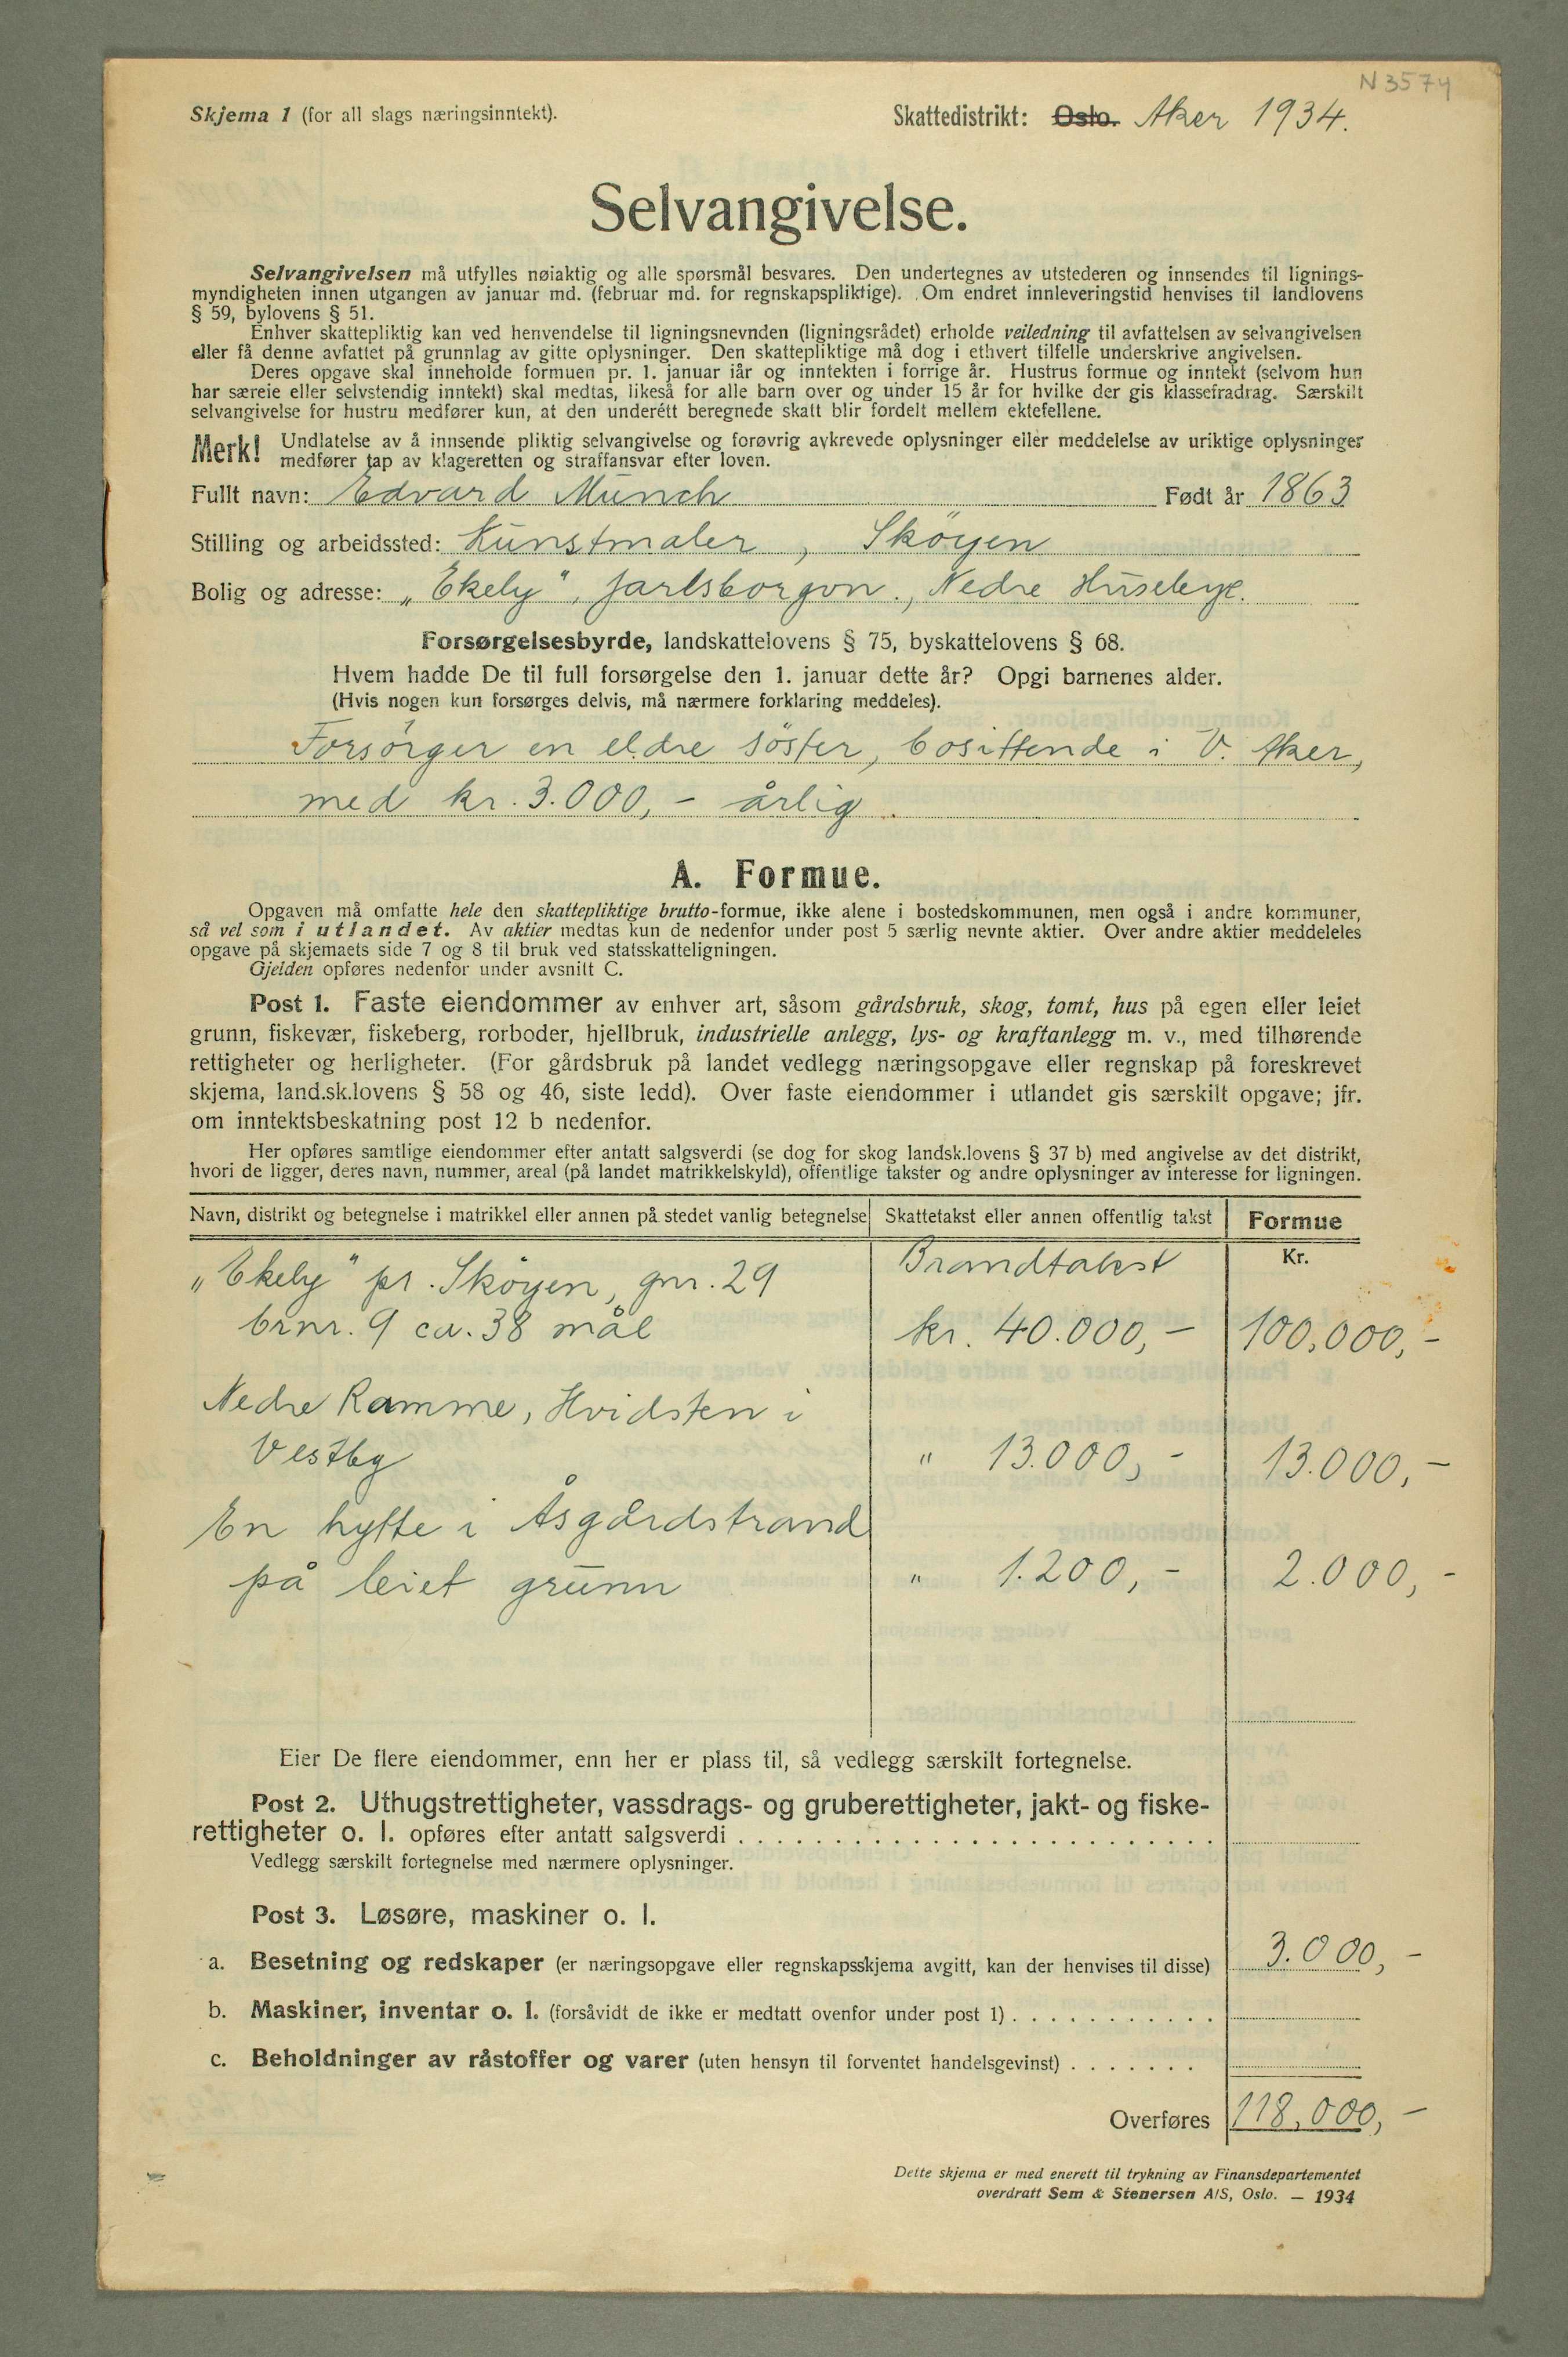 N 3574
Skjema 1 (for all slags næringsinntekt).
Skattedistrikt: Oslo. Aker 1934.
Selvangivelse.
Selvangivelsen må utfylles nøiaktig og alle spørsmål besvares. Den undertegnes av utstederen og innsendes til lignings-
myndigheten innen utgangen av januar md. (februar md. for regnskapspliktige). Om endret innleveringstid henvises til landlovens
§ 59, bylovens § 51.
Enhver skattepliktig kan ved henvendelse til ligningsnevnden (ligningsrådet) erholde veiledning til avfattelsen av selvangivelsen
eller få denne avfattet på grunnlag av gitte oplysninger. Den skattepliktige må dog i ethvert tilfelle underskrive angivelsen.
Deres opgave skal inneholde formuen pr. 1. januar iår og inntekten i forrige år. Hustrus formue og inntekt (selvom hun
har særeie eller selvstendig inntekt) skal medtas, likeså for alle barn over og under 15 år for hvilke der gis klassefradrag. Særskilt
selvangivelse for hustru medfører kun, at den underétt beregnede skatt blir fordelt mellem ektefellene.
Merk! Undlatelse av å innsende pliktig selvangivelse og forøvrig avkrevede oplysninger eller meddelelse av uriktige oplysninger
medfører tap av klageretten og straffansvar efter loven.
Fullt navn: Edvard Munch Født år 1863
Stilling og arbeidssted: Kunstmaler, Sköyen
Bolig og adresse: „Ekely", Jarlsborgvn., Nedre Huseby.
Forsørgelsesbyrde, landskattelovens § 75, byskattelovens § 68.
Hvem hadde De til full forsørgelse den 1. januar dette år? Opgi barnenes alder.
(Hvis nogen kun forsørges delvis, må nærmere forklaring meddeles).
Forsörger en eldre söster, bosittende i V. Aker,
med kr. 3.000,- årlig.
A. Formue.
Opgaven må omfatte hele den skattepliktige brutto-formue, ikke alene i bostedskommunen, men også i andre kommuner,
så vel som i utlandet. Av aktier medtas kun de nedenfor under post 5 særlig nevnte aktier. Over andre aktier meddeleles
opgave på skjemaets side 7 og 8 til bruk ved statsskatteligningen.
Gjelden opføres nedenfor under avsnitt C.
Post 1. Faste eiendommer av enhver art, såsom gårdsbruk, skog, tomt, hus på egen eller leiet
grunn, fiskevær, fiskeberg, rorboder, hjellbruk, industrielle anlegg, lys- og kraftanlegg m. v., med tilhørende
rettigheter og herligheter. (For gårdsbruk på landet vedlegg næringsopgave eller regnskap på foreskrevet
skjema, land.sk.lovens § 58 og 46, siste ledd). Over faste eiendommer i utlandet gis særskilt opgave; jfr.
om inntektsbeskatning post 12 b nedenfor.
Her opføres samtlige eiendommer efter antatt salgsverdi (se dog for skog landsk.lovens § 37 b) med angivelse av det distrikt,
hvori de ligger, deres navn, nummer, areal (på landet matrikkelskyld), offentlige takster og andre oplysninger av interesse for ligningen.
Navn, distrikt og betegnelse i matrikkel eller annen på stedet vanlig betegnelse Skattetakst eller annen offentlig takst Formue
Kr.
„Ekely" pr. Sköyen, gnr. 29 Brandtakst
brnr. 9 ca. 38 mål kr. 40.000,- 100.000,-
Nedre Ramme, Hvidsten i
Vestby " 13.000,- 13.000,-
En hytte i Åsgårdstrand
på leiet grunn " 1.200,- 2.000,-
Eier De flere eiendommer, enn her er plass til, så vedlegg særskilt fortegnelse.
Post 2. Uthugstrettigheter, vassdrags- og gruberettigheter, jakt- og fiske-
rettigheter o. l. opføres efter antatt salgsverdi . . . . . . . . . . . . . . . . . . . . . . . .
Vedlegg særskilt fortegnelse med nærmere oplysninger.
Post 3. Løsøre, maskiner o. l.
a. Besetning og redskaper (er næringsopgave eller regnskapsskjema avgitt, kan der henvises til disse) 3.000,-
b. Maskiner, inventar o. l. (forsåvidt de ikke er medtatt ovenfor under post 1) . . . . . . . . . . .
c. Beholdninger av råstoffer og varer (uten hensyn til forventet handelsgevinst) . . . . . . .
Overføres 118.000,-
Dette skjema er med enerett til trykning av Finansdepartementet
overdratt Sem & Stenersen A/S, Oslo. — 1934